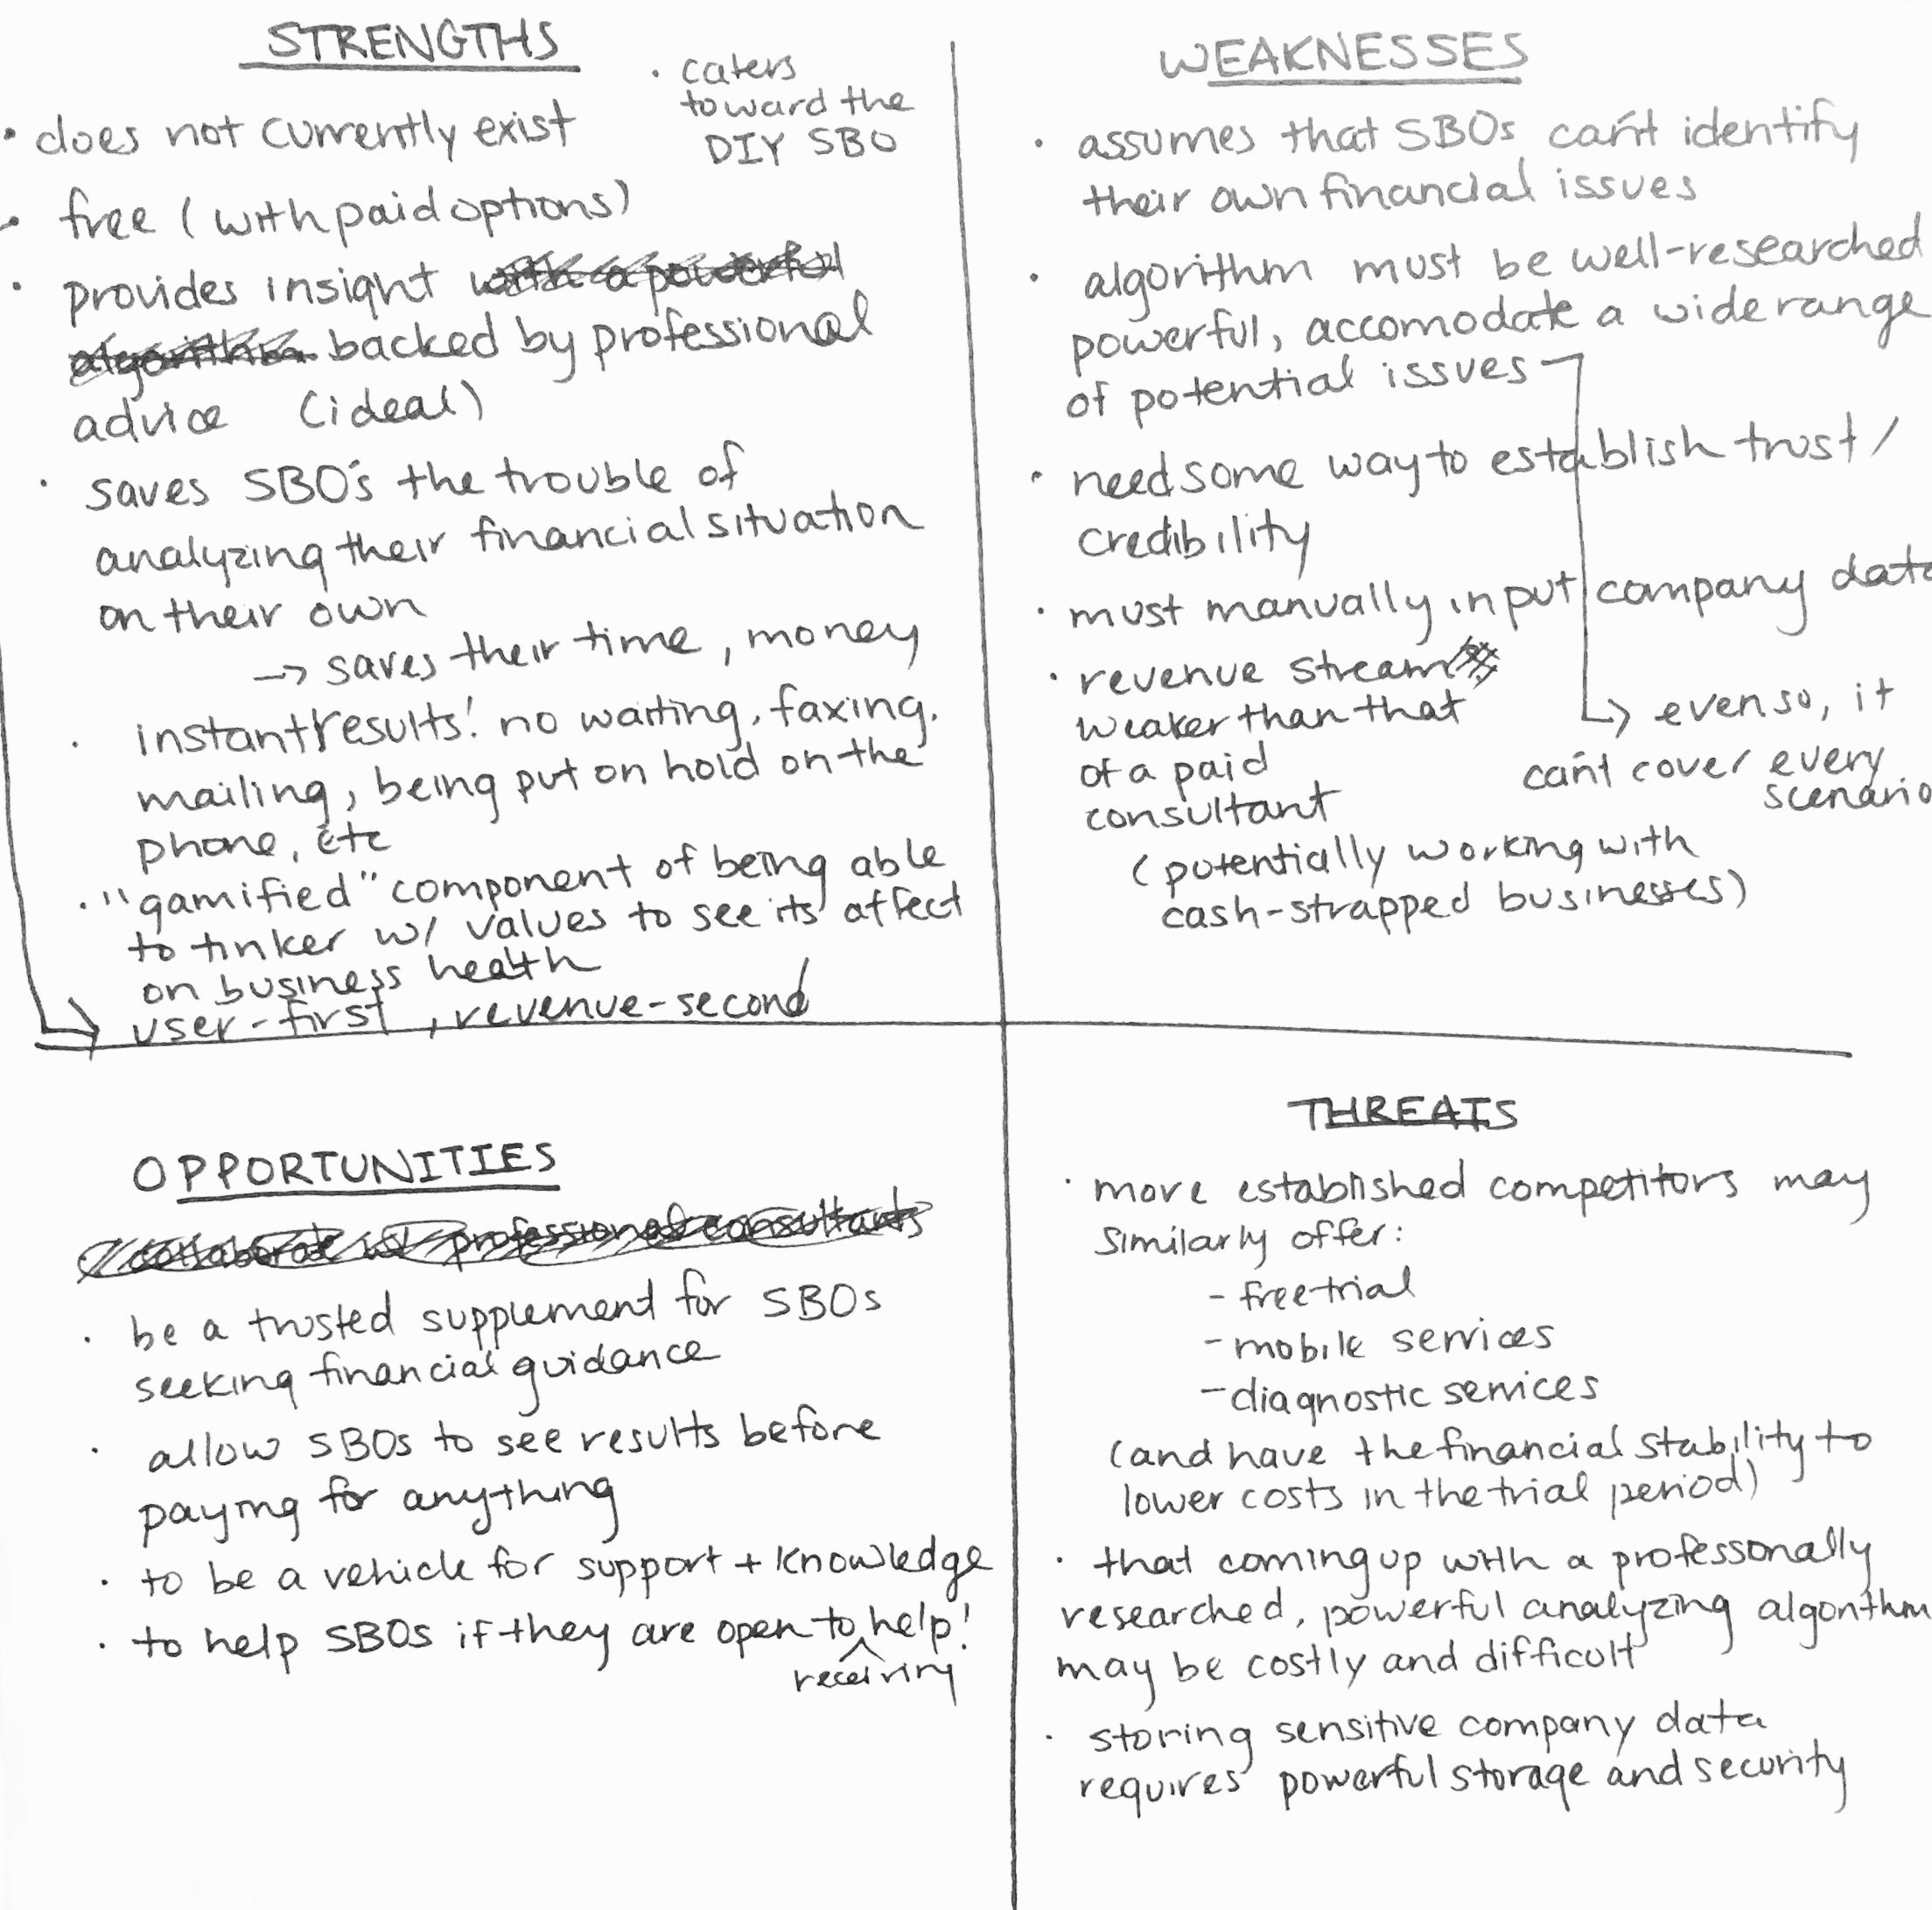 STRENGTHS
• caters
toward the
DIY SBO
• does not currently exist
• free (with paid options)
• provides insight with a powerful
algorithm backed by professional
advice (ideal)
• saves SBO's the trouble of
analyzing their financial situation
on their own
→ saves their time, money
• instant results! no waiting, faxing,
mailing, being put on hold on the
phone, etc
• "gamified" component of being able
to tinker w/ values to see its affect
on business health
user-first, revenue-second
WEAKNESSES
• assumes that SBOs can't identify
their own financial issues
• algorithm must be well-researched
powerful, accomodate a wide range
of potential issues
→ even so, it
can't cover every
scenario
• need some way to establish trust/
credibility
• must manually input company data
• revenue stream
weaker than that
of a paid
consultant
(potentially working with
cash-strapped businesses)
OPPORTUNITIES
collaborate w/ professional consultants
• be a trusted supplement for SBOs
seeking financial guidance
• allow SBOs to see results before
paying for anything
• to be a vehicle for support + knowledge
• to help SBOs if they are open to receiving help!
THREATS
• more established competitors may
similarly offer:
- free trial
- mobile services
- diagnostic services
(and have the financial stability to
lower costs in the trial period)
• that coming up with a professonally
researched, powerful analyzing algorithm
may be costly and difficult
• storing sensitive company data
requires powerful storage and security